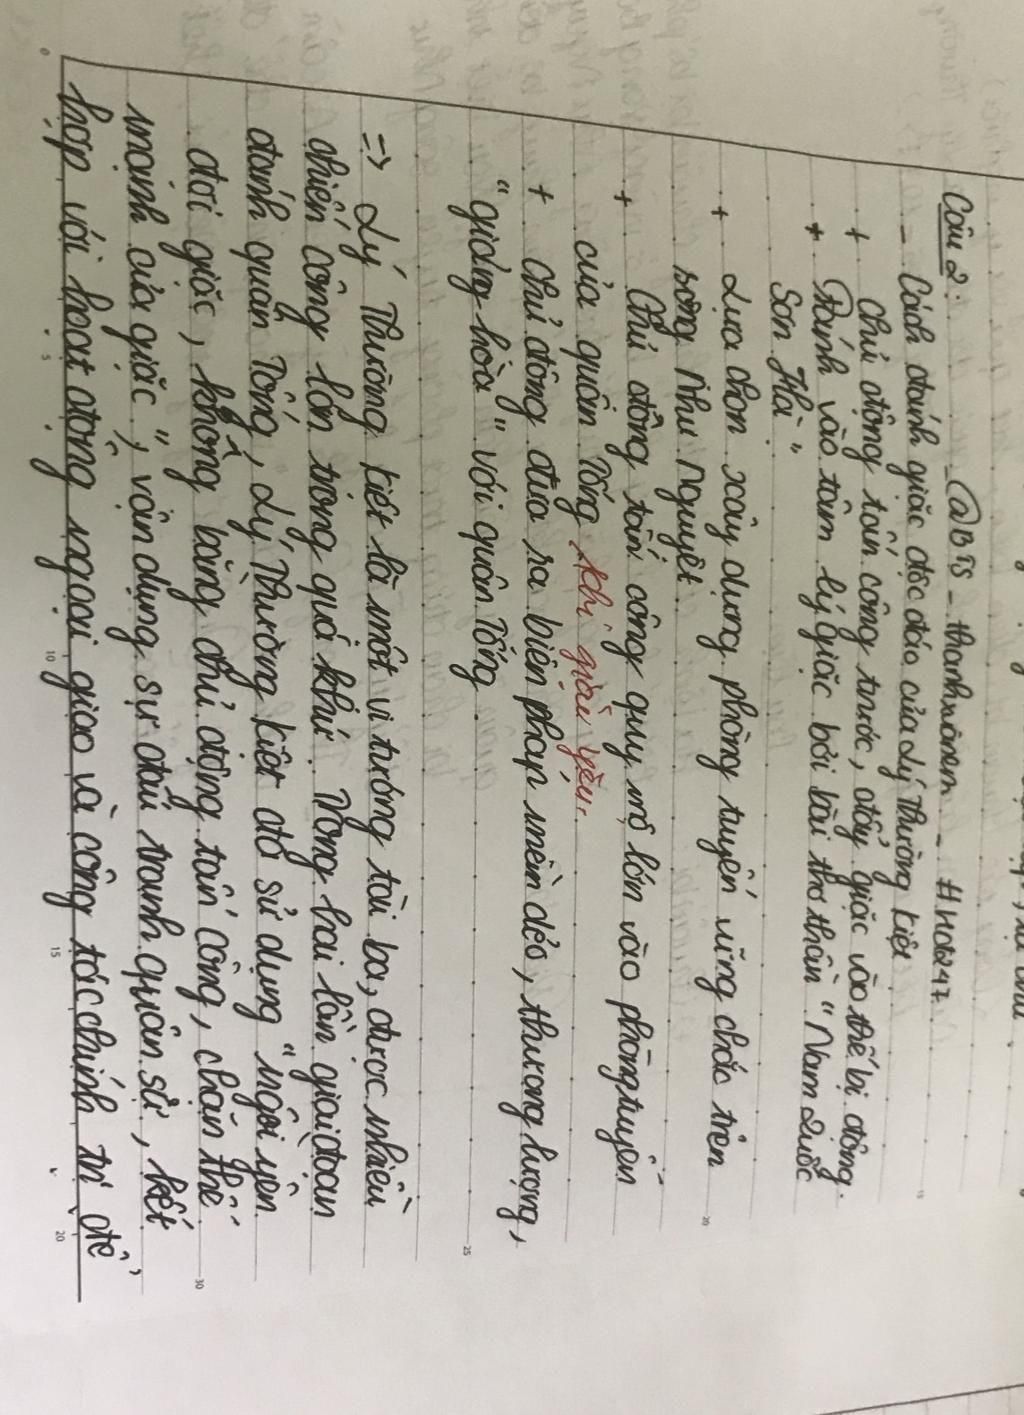 Câu 2: @BTS - thanhmônam - #Hoa247
- Cách đánh giặc độc đáo của Lý Thường Kiệt
+ Chủ động tấn công trước, đẩy giặc vào thế bị động.
+ Đánh vào tâm lý giặc bởi bài thơ thần " Nam Quốc
Sơn Hà "
+ Lựa chọn xây dựng phòng tuyến vững chắc trên
sông Như Nguyệt.
+ Chủ động tấn công quy mô lớn vào phòng tuyến
của quân Tống khi giặc yếu.
+ Chủ động đưa ra biện pháp mềm dẻo, thương lượng,
" giảng hòa " với quân Tống.
=> Lý Thường Kiệt là một vị tướng tài ba, được nhiều
chiến công lớn trong quá khứ. Trong hai lần giai đoạn
đánh quân Tống, Lý Thường Kiệt đã sử dụng " ngồi yên
đợi giặc, không bằng chủ động tấn công, chặn thế
mạnh của giặc ", vận dụng sự đấu tranh quân sự, kết
hợp với hoạt động ngoại giao và công tác chính trị để